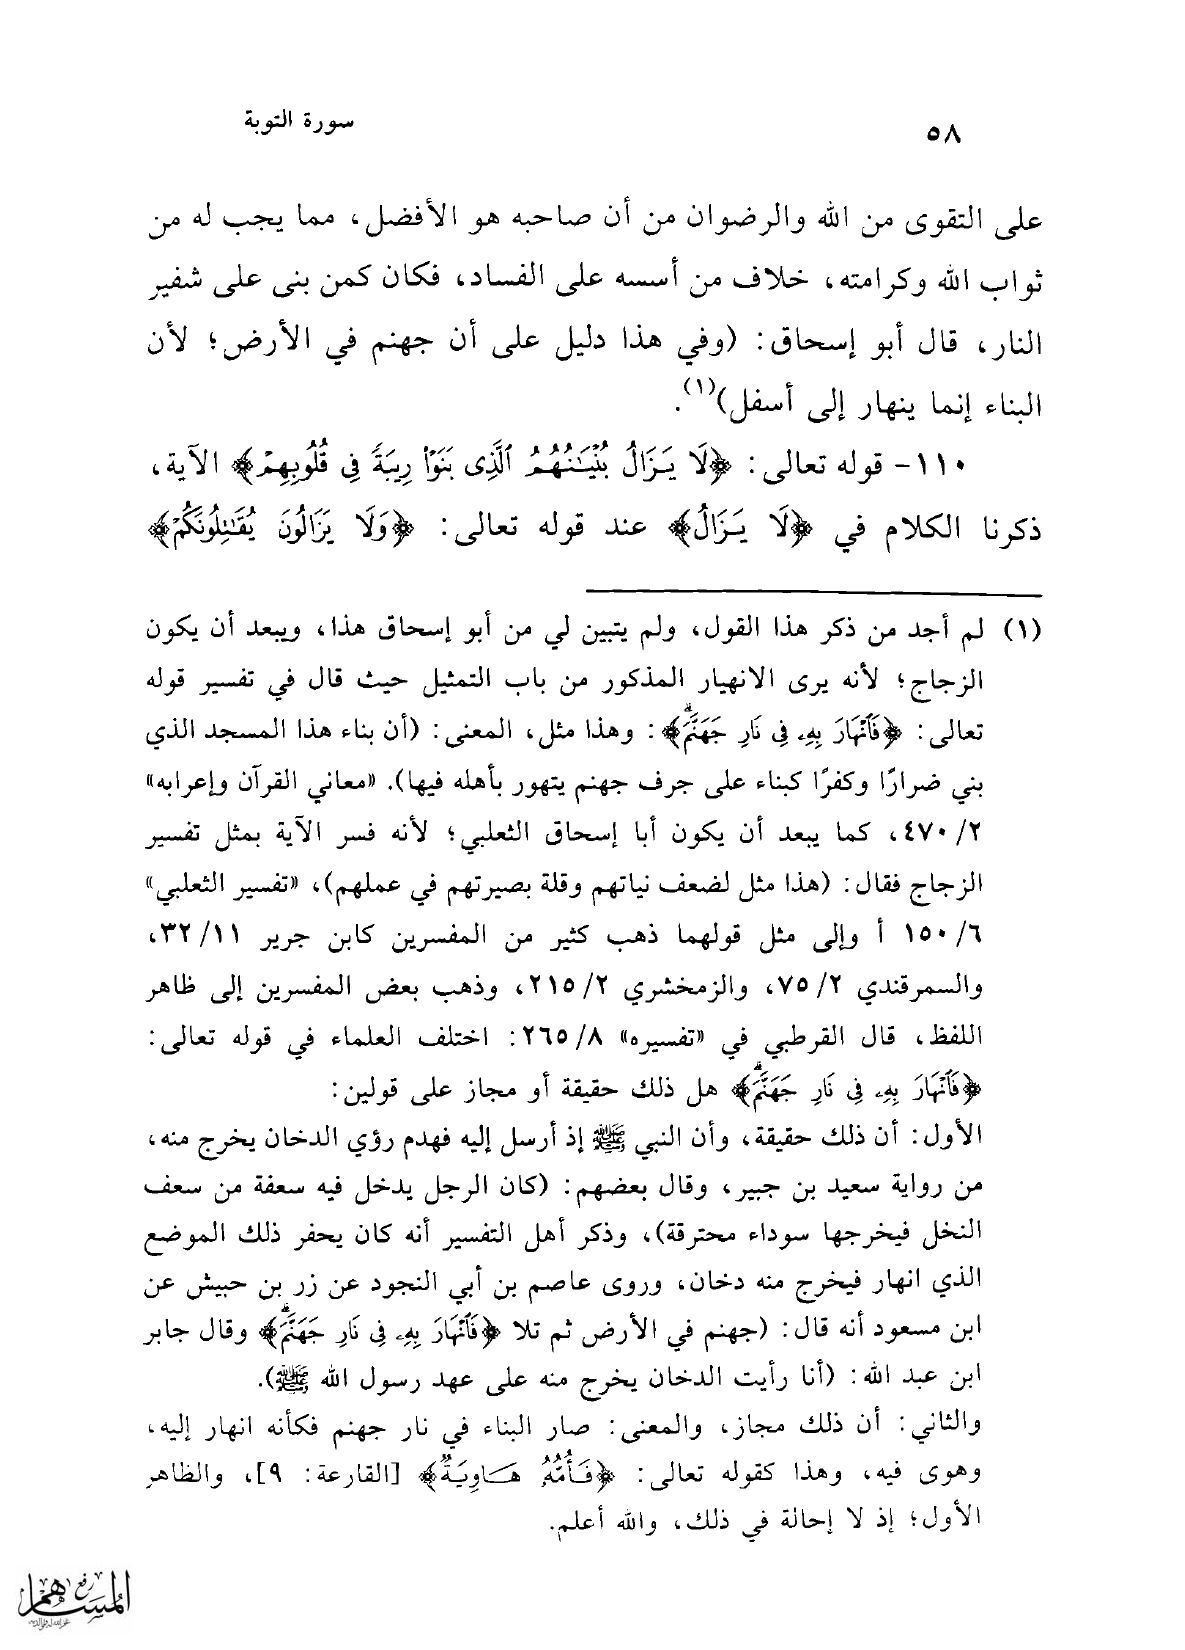 ٥٨
سورة التوبة
على التقوى من الله والرضوان من أن صاحبه هو الأفضل، مما يجب له من
ثواب الله وكرامته، خلاف من أسسه على الفساد، فكان كمن بنى على شفير
النار، قال أبو إسحاق: (وفي هذا دليل على أن جهنم في الأرض؛ لأن
البناء إنما ينهار إلى أسفل)(١).
١١٠- قوله تعالى: ﴿لَا يَزَالُ بُنْيَانُهُمُ الَّذِى بَنَوْا رِيبَةً فِى قُلُوبِهِمْ﴾ الآية،
ذكرنا الكلام في ﴿لَا يَزَالُ﴾ عند قوله تعالى: ﴿وَلَا يَزَالُونَ يُقَاتِلُونَكُمْ﴾
(١) لم أجد من ذكر هذا القول، ولم يتبين لي من أبو إسحاق هذا، ويبعد أن يكون
الزجاج؛ لأنه يرى الانهيار المذكور من باب التمثيل حيث قال في تفسير قوله
تعالى: ﴿فَٱنْهَارَ بِهِۦ فِى نَارِ جَهَنَّمَۗ﴾: وهذا مثل، المعنى: (أن بناء هذا المسجد الذي
بني ضرارًا وكفرًا كبناء على جرف جهنم يتهور بأهله فيها). «معاني القرآن وإعرابه»
٢/ ٤٧٠، كما يبعد أن يكون أبا إسحاق الثعلبي؛ لأنه فسر الآية بمثل تفسير
الزجاج فقال: (هذا مثل لضعف نياتهم وقلة بصيرتهم في عملهم)، «تفسير الثعلبي»
٦/ ١٥٠ أ وإلى مثل قولهما ذهب كثير من المفسرين كابن جرير ١١/ ٣٢،
والسمرقندي ٢/ ٧٥، والزمخشري ٢/ ٢١٥، وذهب بعض المفسرين إلى ظاهر
اللفظ، قال القرطبي في «تفسيره» ٨/ ٢٦٥: اختلف العلماء في قوله تعالى:
﴿فَٱنْهَارَ بِهِۦ فِى نَارِ جَهَنَّمَۗ﴾ هل ذلك حقيقة أو مجاز على قولين:
الأول: أن ذلك حقيقة، وأن النبي ﷺ إذ أرسل إليه فهدم رؤي الدخان يخرج منه،
من رواية سعيد بن جبير، وقال بعضهم: (كان الرجل يدخل فيه سعفة من سعف
النخل فيخرجها سوداء محترقة)، وذكر أهل التفسير أنه كان يحفر ذلك الموضع
الذي انهار فيخرج منه دخان، وروى عاصم بن أبي النجود عن زر بن حبيش عن
ابن مسعود أنه قال: (جهنم في الأرض ثم تلا ﴿فَٱنْهَارَ بِهِۦ فِى نَارِ جَهَنَّمَۗ﴾ وقال جابر
ابن عبد الله: (أنا رأيت الدخان يخرج منه على عهد رسول الله ﷺ).
والثاني: أن ذلك مجاز، والمعنى: صار البناء في نار جهنم فكأنه انهار إليه،
وهوى فيه، وهذا كقوله تعالى: ﴿فَأُمُّهُۥ هَاوِيَةٌ﴾ [القارعة: ٩]، والظاهر
الأول؛ إذ لا إحالة في ذلك، والله أعلم.